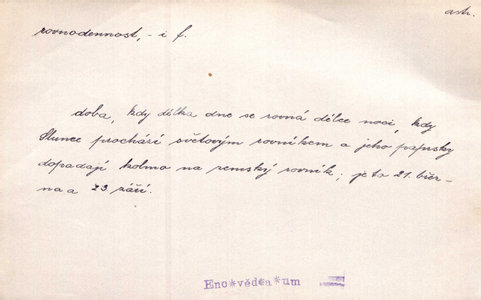 astr.
rovnodennost, -i f.
doba, kdy délka dne se rovná délce noci, kdy
Slunce prochází světovým rovníkem a jeho paprsky
dopadají kolmo na zemský rovník; je to 21. břez-
na a 23 září.
Eno*věd*a*um